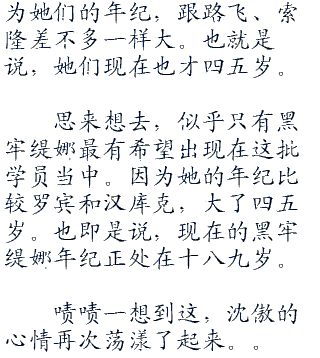 为她们的年纪，跟路飞、索
隆差不多一样大。也就是
说，她们现在也才四五岁。
思来想去，似乎只有黑
牢缇娜最有希望出现在这批
学员当中。因为她的年纪比
较罗宾和汉库克，大了四五
岁。也即是说，现在的黑牢
缇娜年纪正处在十八九岁。
啧啧一想到这，沈傲的
心情再次荡漾了起来。。